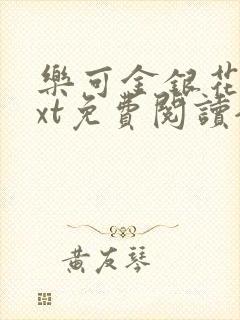 樂可金銀花
xt免費閱讀
黃友琴